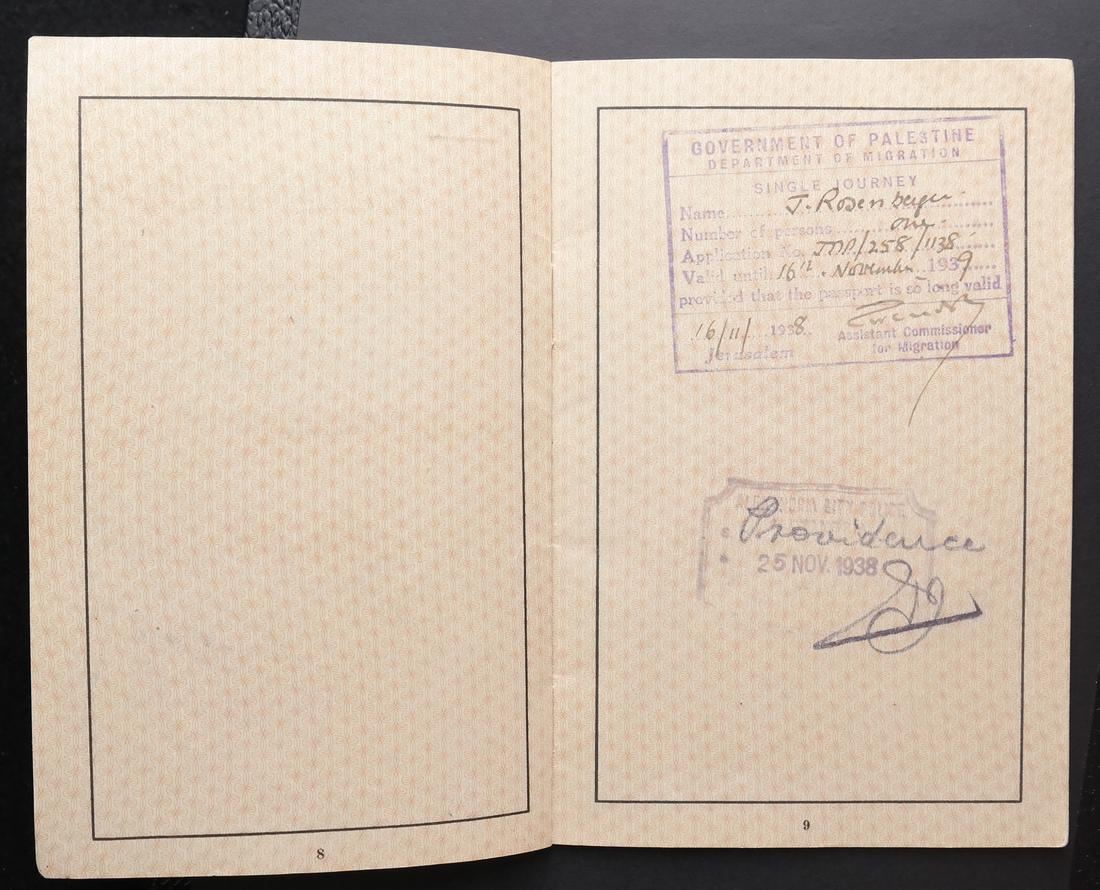 GOVERNMENT OF PALESTINE
DEPARTMENT OF MIGRATION
SINGLE JOURNEY
Name J. Rosenberger
Number of persons one
Application No. /258/1138
Valid until 16th November 1939
provided that the passport is so long valid
16/11/ 1938
Assistant Commissioner
for Migration
Jerusalem
CITY POLICE
Providence
25 NOV. 1938
8
9